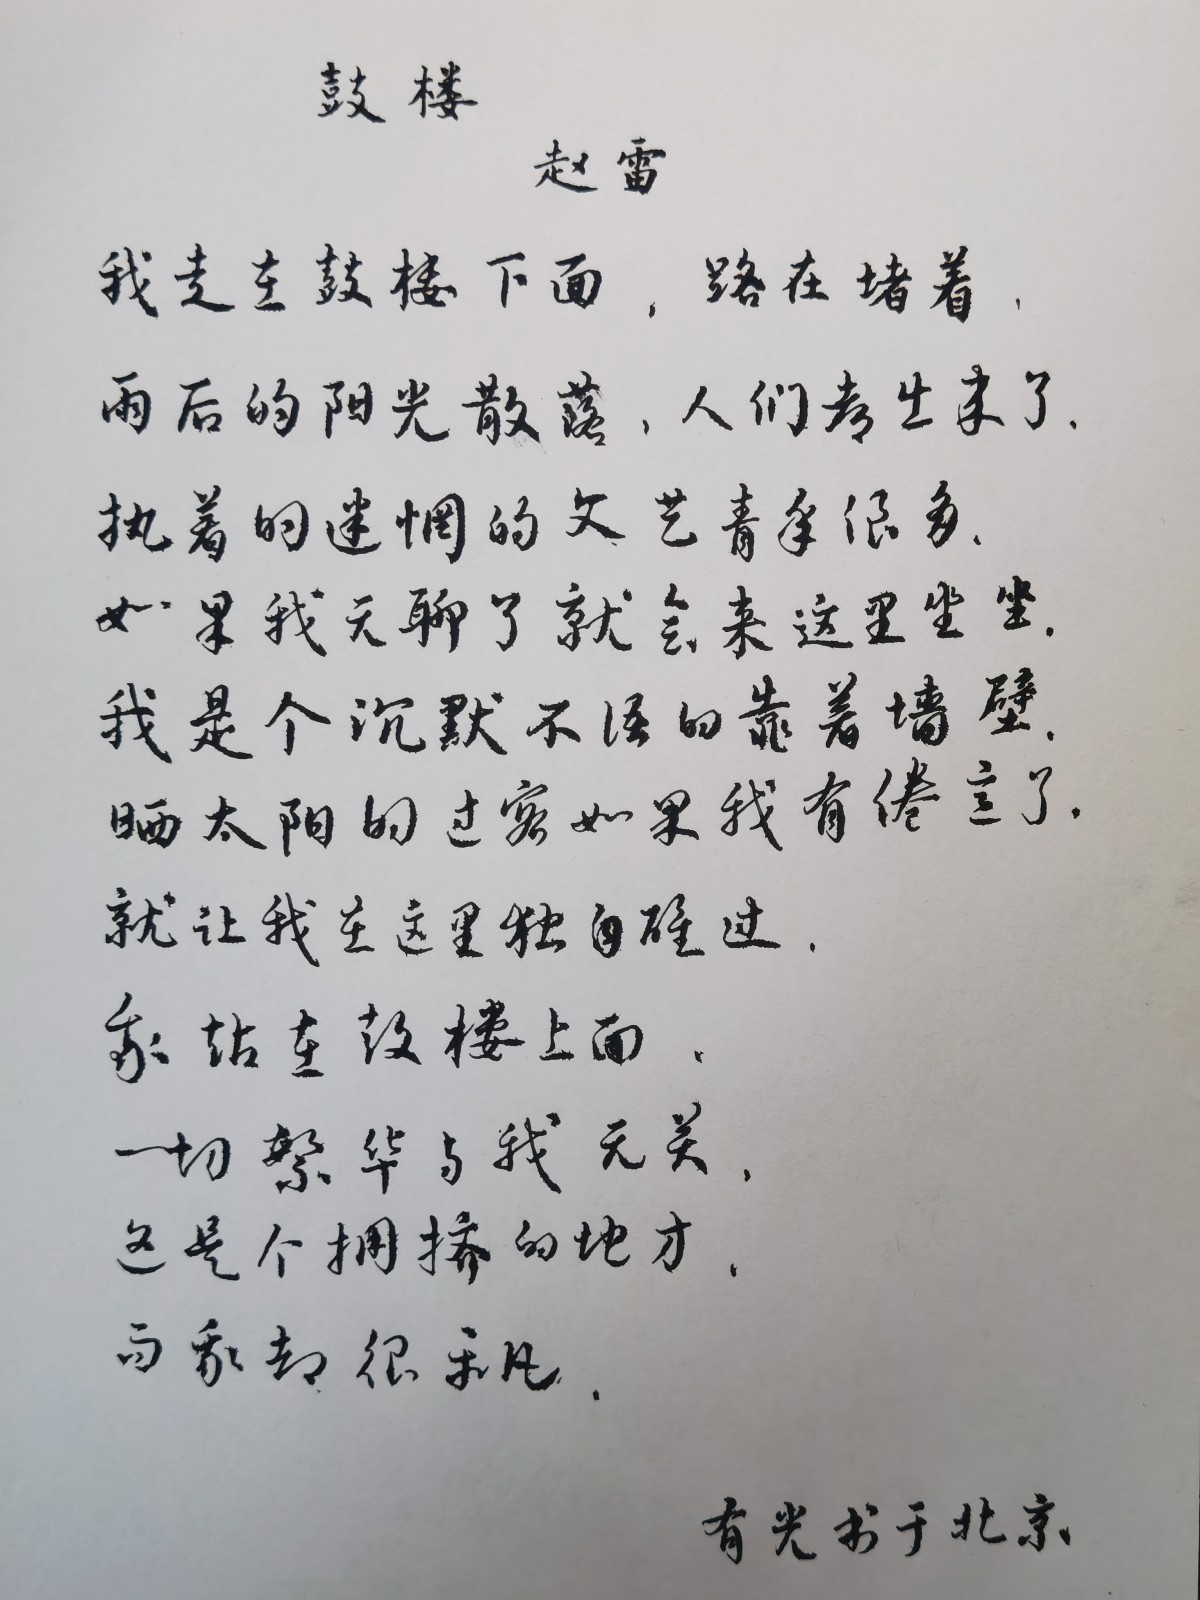 鼓楼
赵雷
我走在鼓楼下面，路在堵着，
雨后的阳光散落，人们都出来了，
执着的迷惘的文艺青年很多，
如果我无聊了就会来这里坐坐，
我是个沉默不语的靠着墙壁，
晒太阳的过客如果我有倦意了，
就让我在这里独自难过，
我站在鼓楼上面，
一切繁华与我无关，
这是个拥挤的地方，
而我却很平凡，
有光书于北京